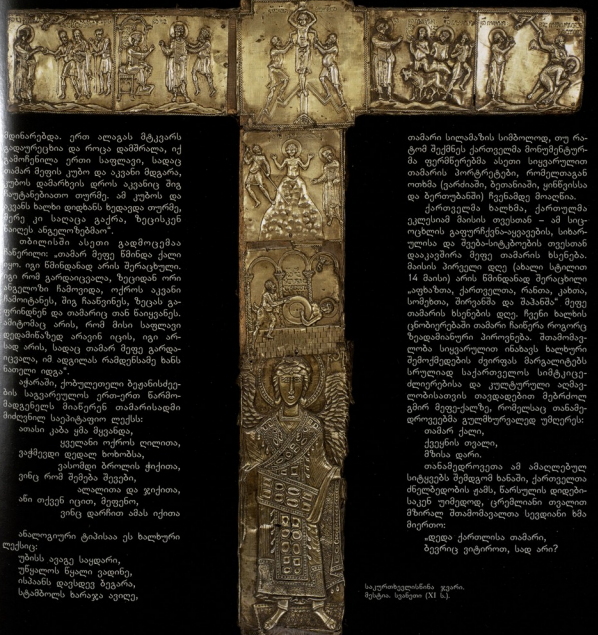 მდინარებდა. ერთ ალაგას მტკვარს
გადაურეცხია და როცა დამშრალა, იქ
გამოჩენილა ერთი საფლავი, სადაც
თამარ მეფის კუბო და აკვანი მდგარა,
კუბოს დამარხვის დროს აკვანიც შიგ
ჩაუტანებიათო თურმე. ამ კუბოს და
აკვანს ხალხი დიდხანს ხედავდა თურმე,
მერე კი სადაცა გაქრა, ზეცისკენ
წაიღეს ანგელოზებმაო“.
თბილისში ასეთი გადმოცემაა
ჩაწერილი: „თამარ მეფე წმინდა ქალი
იყო. იგი წმინდანად არის შერაცხული.
იგი რომ გარდაიცვალა, ზეციდან ორი
ანგელოზი ჩამოვიდა, ოქროს აკვანი
ჩამოიტანეს, შიგ ჩააწვინეს, ზეცას გა-
ფრინდნენ და თამარიც თან წაიყვანეს.
ამიტომაც არის, რომ მისი საფლავი
დედამიწაზედ არავინ იცის, იგი არ-
სად არის, სადაც თამარ მეფე გარდა-
იცვალა, იმ ადგილას რამდენსამე ხანს
ნათელი იდგა“.
აჭარაში, ქობულეთელი ბეჟანისძეე-
ბის საგვარეულოს ერთ-ერთ წარმო-
მადგენელს მიაწერენ თამარისადმი
მიძღვნილ საეპიტაფიო ლექსს:
ათასი კაბა ყმა მყვანდა,
ყველანი ოქროს ღილითა,
ვაჭმევდი დედალ ხოხობსა,
ვასომდი ბროლის ჭიქითა,
ვინც რომ შემება შევები,
ალალითა და ჯიქითა,
აწი თქვენ იცით, მეფენო,
ვინც დარჩით ამას იქითა
ანალოგიური ტიპისაა ეს ხალხური
ლექსიც:
უბისს ავაგე საყდარი,
უწყალოს წყალი ვადინე,
ისპაანს დავსდევ ბეგარა,
სტამბოლს ხარაჯა ავიღე,
თამარი სილამაზის სიმბოლოდ, თუ რა-
ტომ შექმნეს ქართველმა მონუმენტურ-
მა ფერმწერებმა ასეთი სიყვარულით
თამარის პორტრეტები, რომელთაგან
ოთხმა (ვარძიაში, ბეთანიაში, ყინწვისსა
და ბერთუბანში) ჩვენამდე მოაღწია.
ქართველმა ხალხმა, ქართულმა
ეკლესიამ მაისის თვესთან – ამ სიც-
ოცხლის გაფურჩქვნა-აყვავების, სიხარ-
ულისა და შვება-სიტკბოების თვესთან
დააკავშირა მეფე თამარის ხსენება.
მაისის პირველი დღე (ახალი სტილით
14 მაისი) არის წმინდანად შერაცხილი
„აფხაზთა, ქართველთა, რანთა, კახთა,
სომეხთა, შირვანშა და შაჰანშა“ მეფე
თამარის ხსენების დღე. ჩვენი ხალხის
ცნობიერებაში თამარი ჩაიწერა როგორც
ზეადამიანური პიროვნება. შთამომავ-
ლობა სიყვარულით ინახავს ხალხური
შემოქმედების ძვირფას მარგალიტებს
სრულიად საქართველოს სიმტკიცე-
ძლიერებისა და კულტურული აღმავ-
ლობისათვის თავდადებით მებრძოლ
გმირ მეფე-ქალზე, რომელსაც თანამე-
დროვეებმა გულმხურვალედ უმღერეს:
თამარ ქალი,
ქვეყნის თვალი,
მზისა დარი.
თანამედროვეთა ამ ამაღლებულ
სიტყვებს შემდგომ ხანაში, ქართველთა
ძნელბედობის ჟამს, წარსულის დიდები-
საკენ უიმედოდ, ცრემლიანი თვალით
მზირალ შთამომავალთა სევდიანი ხმა
მიერთო:
„დედა ქართლისა თამარი,
ბევრიც ვიტიროთ, სად არი?
საკურთხევლისწინა ჯვარი.
მესტია. სვანეთი (XI ს.).